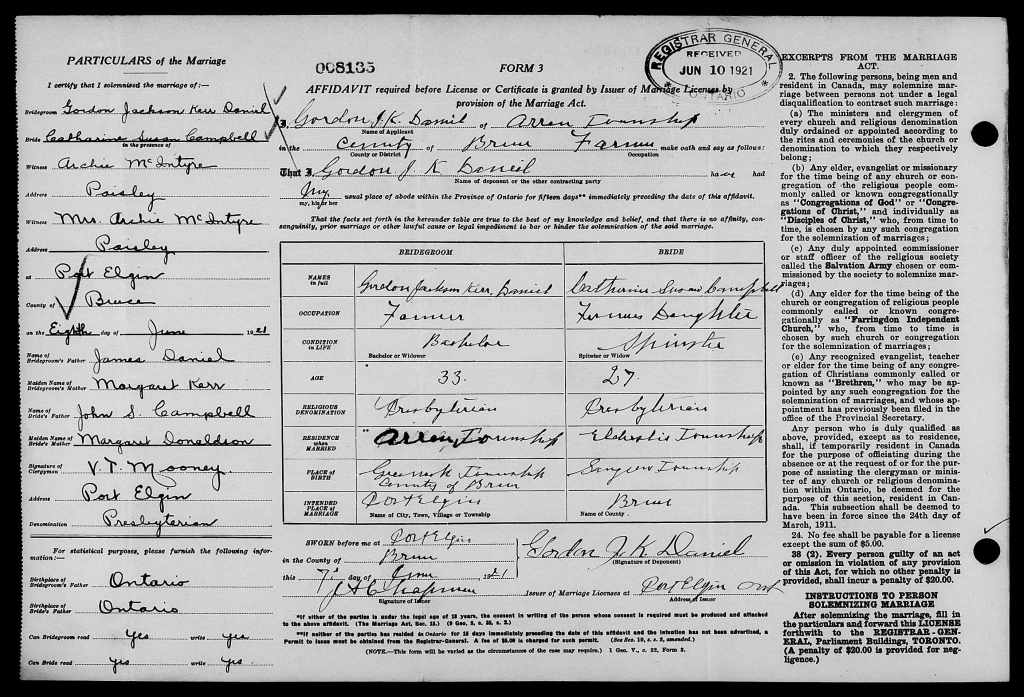 PARTICULARS of the Marriage
I certify that I solemnized the marriage of:—
Bridegroom Gordon Jackson Kerr Daniel
Bride Catharine Susan Campbell
in the presence of
Witness Archie McIntyre
Address Paisley
Witness Mrs. Archie McIntyre
Address Paisley
at Port Elgin
County of Bruce
on the Eighth day of June 1921
Name of Bridegroom's Father James Daniel
Maiden Name of Bridegroom's Mother Margaret Kerr
Name of Bride's Father John S. Campbell
Maiden Name of Bride's Mother Margaret Donaldson
Signature of Clergyman V. T. Mooney.
Address Port Elgin
Denomination Presbyterian
For statistical purposes, please furnish the following information:—
Birthplace of Bridegroom's Father Ontario
Birthplace of Bride's Father Ontario
Can Bridegroom read yes write yes
Can Bride read yes write yes.
008135
FORM 3
REGISTRAR GENERAL
RECEIVED
JUN 10 1921
ONTARIO
AFFIDAVIT required before License or Certificate is granted by Issuer of Marriage Licenses by
provision of the Marriage Act.
I, Gordon J. K. Daniel of Arran Township
Name of Applicant
in the County of Bruce Farmer make oath and say as follows:
County or District Occupation
That I, Gordon J K Daniel have had
Name of deponent or the other contracting party
my usual place of abode within the Province of Ontario for fifteen days** immediately preceding the date of this affidavit.
my, his or her
That the facts set forth in the hereunder table are true to the best of my knowledge and belief, and that there is no affinity, con-
sanguinity, prior marriage or other lawful cause or legal impediment to bar or hinder the solemnization of the said marriage.
BRIDEGROOM BRIDE
NAMES in full Gordon Jackson Kerr Daniel Catharine Susan Campbell
OCCUPATION Farmer Farmers Daughter
CONDITION in LIFE Bachelor Spinster
Bachelor or Widower Spinster or Widow
AGE 33. 27.
RELIGIOUS DENOMINATION Presbyterian Presbyterian
RESIDENCE when MARRIED ** Arran Township Elderslie Township
PLACE of BIRTH Greenock Township County of Bruce Township
INTENDED PLACE of MARRIAGE Port Elgin Bruce
Name of City, Town, Village or Township Name of County
SWORN before me at Port Elgin
in the County of Bruce
this 7th day of June 1921
Gordon J. K. Daniel
(Signature of Deponent)
Chapman Issuer of Marriage Licenses at Port Elgin Ont
Signature of Issuer Address of Issuer
*If either of the parties is under the legal age of 18 years, the consent in writing of the person whose consent is required must be produced and attached
to the above affidavit. (The Marriage Act, Sec. 15.)
**If neither of the parties has resided in Ontario for 15 days immediately preceding the date of this affidavit and the intention has not been advertised, a
Permit to issue must be obtained from the Registrar-General. A fee of $5.00 is charged for such permit.
(NOTE.—This form will be varied as the circumstances of the case may require.) 1 Geo. V., c. 32, Form 3.
EXCERPTS FROM THE MARRIAGE
ACT.
2. The following persons, being men and
resident in Canada, may solemnize mar-
riage between persons not under a legal
disqualification to contract such marriage:
(a) The ministers and clergymen of
every church and religious denomination
duly ordained or appointed according to
the rites and ceremonies of the church or
denomination to which they respectively
belong;
(b) Any elder, evangelist or missionary
for the time being of any church or con-
gregation of the religious people com-
monly called or known congregationally
as "Congregations of God" or "Congre-
gations of Christ," and individually as
"Disciples of Christ," who, from time to
time, is chosen by any such congregation
for the solemnization of marriages;
(c) Any duly appointed commissioner
or staff officer of the religious society
called the Salvation Army chosen or com-
missioned by the society to solemnize mar-
riages;
(d) Any elder for the time being of the
church or congregation of religious people
commonly called or known congre-
gationally as "Farringdon Independent
Church," who, from time to time is
chosen by such church or congregation
for the solemnization of marriages;
(e) Any recognized evangelist, teacher
or elder for the time being of any congre-
gation of Christians commonly called or
known as "Brethren," who may be
appointed by any such congregation for the
solemnization of marriages, and whose ap-
pointment has previously been filed in the
office of the Provincial Secretary.
Any person who is duly qualified as
above, provided, except as to residence,
shall, if temporarily resident in Canada
for the purpose of officiating during the
absence or at the request of or for the pur-
pose of assisting the clergyman or minis-
ter of any church or religious denomina-
tion within Ontario, be deemed for the
purpose of this section, resident in Can-
ada. This subsection shall be deemed to
have been in force since the 24th day of
March, 1911.
24. No fee shall be payable for a license
except the sum of $5.00.
38 (2). Every person guilty of an act
or omission in violation of any provision
of this Act, for which no other penalty is
provided, shall incur a penalty of $20.00.
INSTRUCTIONS TO PERSON
SOLEMNIZING MARRIAGE
After solemnizing the marriage, fill in
the particulars and forward this LICENSE
forthwith to the REGISTRAR-GEN-
ERAL, Parliament Buildings, TORONTO.
(A penalty of $20.00 is provided for neg-
ligence.)